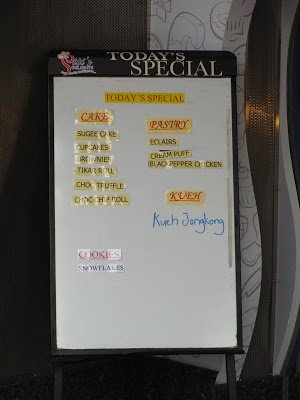 TODAY'S
SPECIAL
TODAY'S SPECIAL
CAKE
SUGEE CAKE
CUPCAKES
BROWNIES
TIKAR ROLL
CHOC TRUFFLE
CHOC CHIP ROLL
PASTRY
ECLAIRS
CREAM PUFF
BLACKPEPPER CHICKEN
KUEH
Kueh Jongkong
COOKIES
SNOWFLAKES